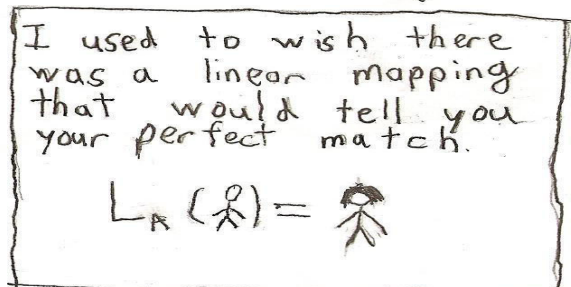 I used to wish there
was a linear mapping
that would tell you
your perfect match.
L_A ( ) =